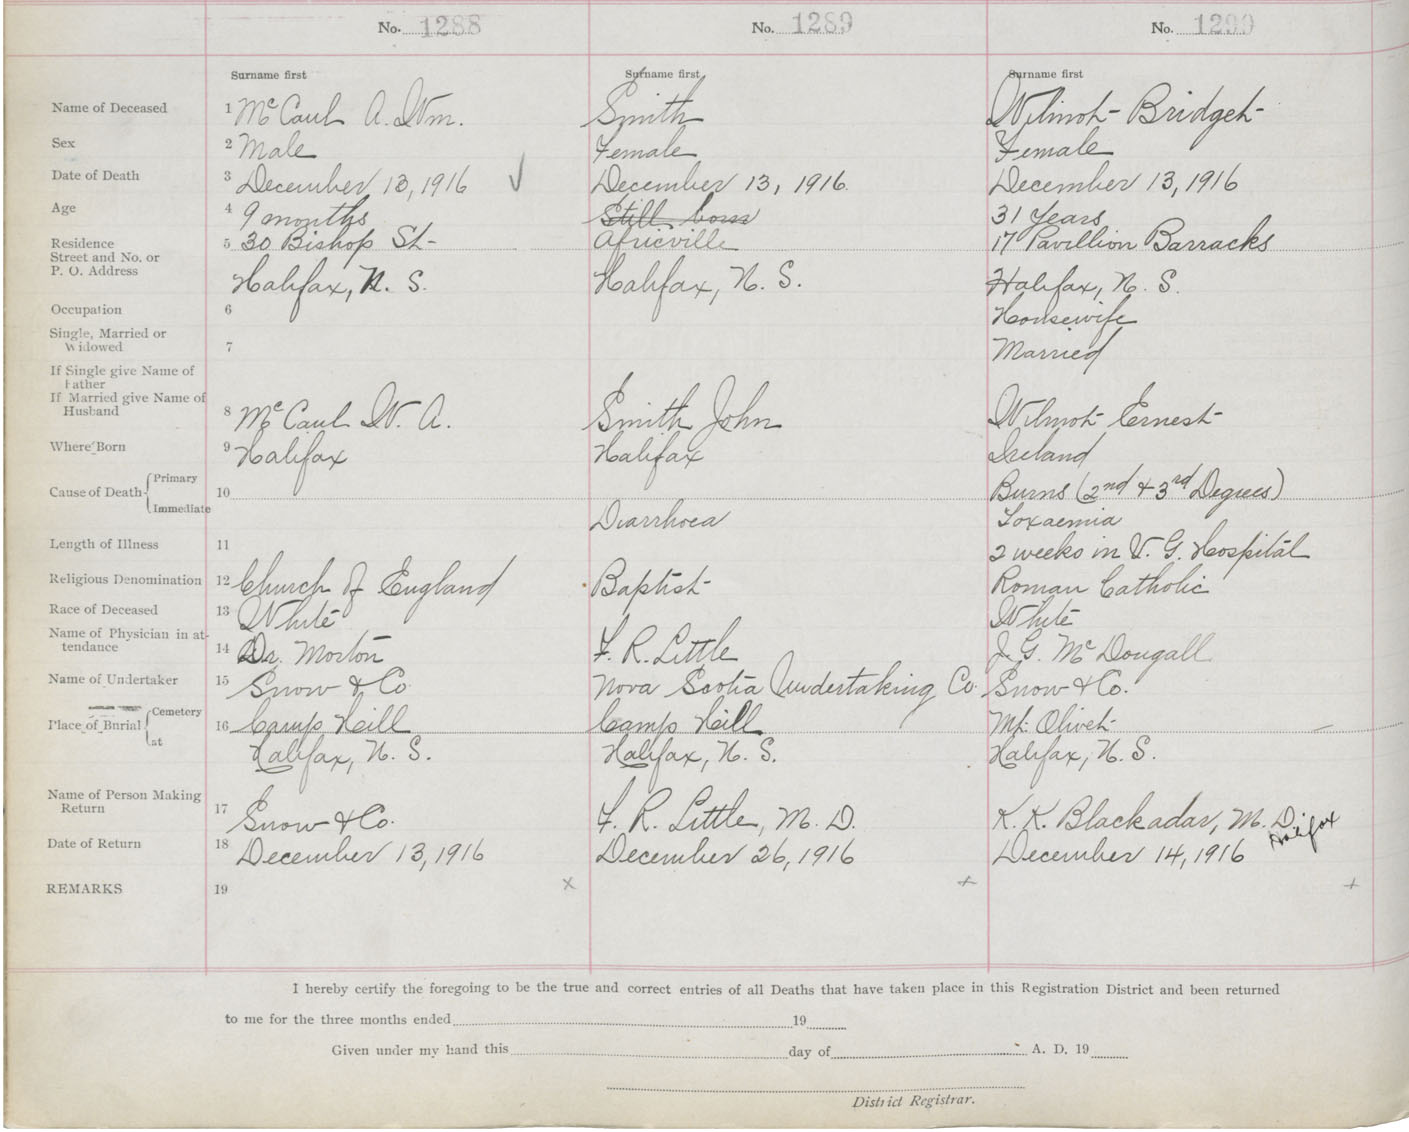 No. 1288 No. 1289 No. 1290
Surname first Surname first Surname first
Name of Deceased 1 McCaul A. Wm. Smith Wilmot Bridget
Sex 2 Male Female Female
Date of Death 3 December 13, 1916 December 13, 1916. December 13, 1916
Age 4 9 months Still born 31 Years
Residence 5 30 Bishop St Africville 17 Pavillion Barracks
Street and No. or
P. O. Address Halifax, N. S. Halifax, N. S. Halifax, N. S.
Occupation 6 Housewife
Single, Married or
Widowed 7 Married
If Single give Name of
Father
If Married give Name of
Husband 8 McCaul W. A. Smith John Wilmot Ernest
Where Born 9 Halifax Halifax Ireland
Cause of Death Primary 10 Burns (2nd & 3rd Degrees)
Immediate Diarrhoea Toxaemia
Length of Illness 11 2 weeks in V. G. Hospital
Religious Denomination 12 Church of England Baptist Roman Catholic
Race of Deceased 13 White White
Name of Physician in at-
tendance 14 Dr. Morton F. R. Little J. G. McDougall
Name of Undertaker 15 Snow & Co. Nova Scotia Undertaking Co. Snow & Co.
Place of Burial Cemetery 16 Camp Hill Camp Hill Mt. Olivet
at Halifax, N. S. Halifax, N. S. Halifax, N. S.
Name of Person Making
Return 17 Snow & Co. F. R. Little, M. D. K. K. Blackadar, M. D. Halifax
Date of Return 18 December 13, 1916 December 26, 1916 December 14, 1916
REMARKS 19 x + +
I hereby certify the foregoing to be the true and correct entries of all Deaths that have taken place in this Registration District and been returned
to me for the three months ended 19
Given under my hand this day of A. D. 19
District Registrar.